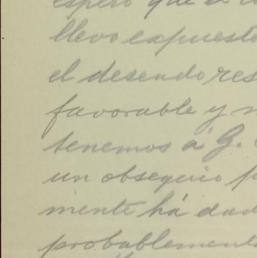 espero que si
llevo expuesto
el deseado res
favorable y
tenemos á G.
un obsequio p
mente há dad
probablement